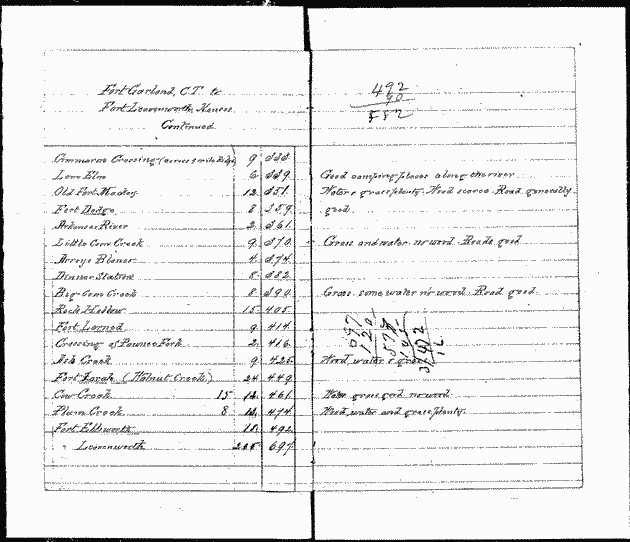 Fort Garland, C.T. to
Fort Leavenworth, Kansas
Continued
492
90
582
Cimmaron Crossing (across 9 mile Ridge) 9 333.
Lone Elm 6 339. Good camping places along the river.
Old Fort Mackey 12 351. Water & grass plenty. Wood scarce. Road generally
Fort Dodge 8 359. good.
Arkansas River 2 361.
Little Cow Creek 9 370. Grass and water. no wood. Roads good
Arroyo Blanco 4 374.
Dinner Station 8 382
Big Cow Creek 8 390. Grass. some water no wood. Road good.
Rock Hollow 15 405.
Fort Larned 9 414
Crossing of Pawnee Fork 2 416.
Ash Creek 9 425. Wood, water & grass
Fort Zarah (Walnut Creek) 24 449
Cow Creek 15 12 461. Water grass good no wood.
Plum Creek 8 13 474. Wood, water and grass plenty.
Fort Ellsworth 18 492
" Leavenworth 205 697
697
120